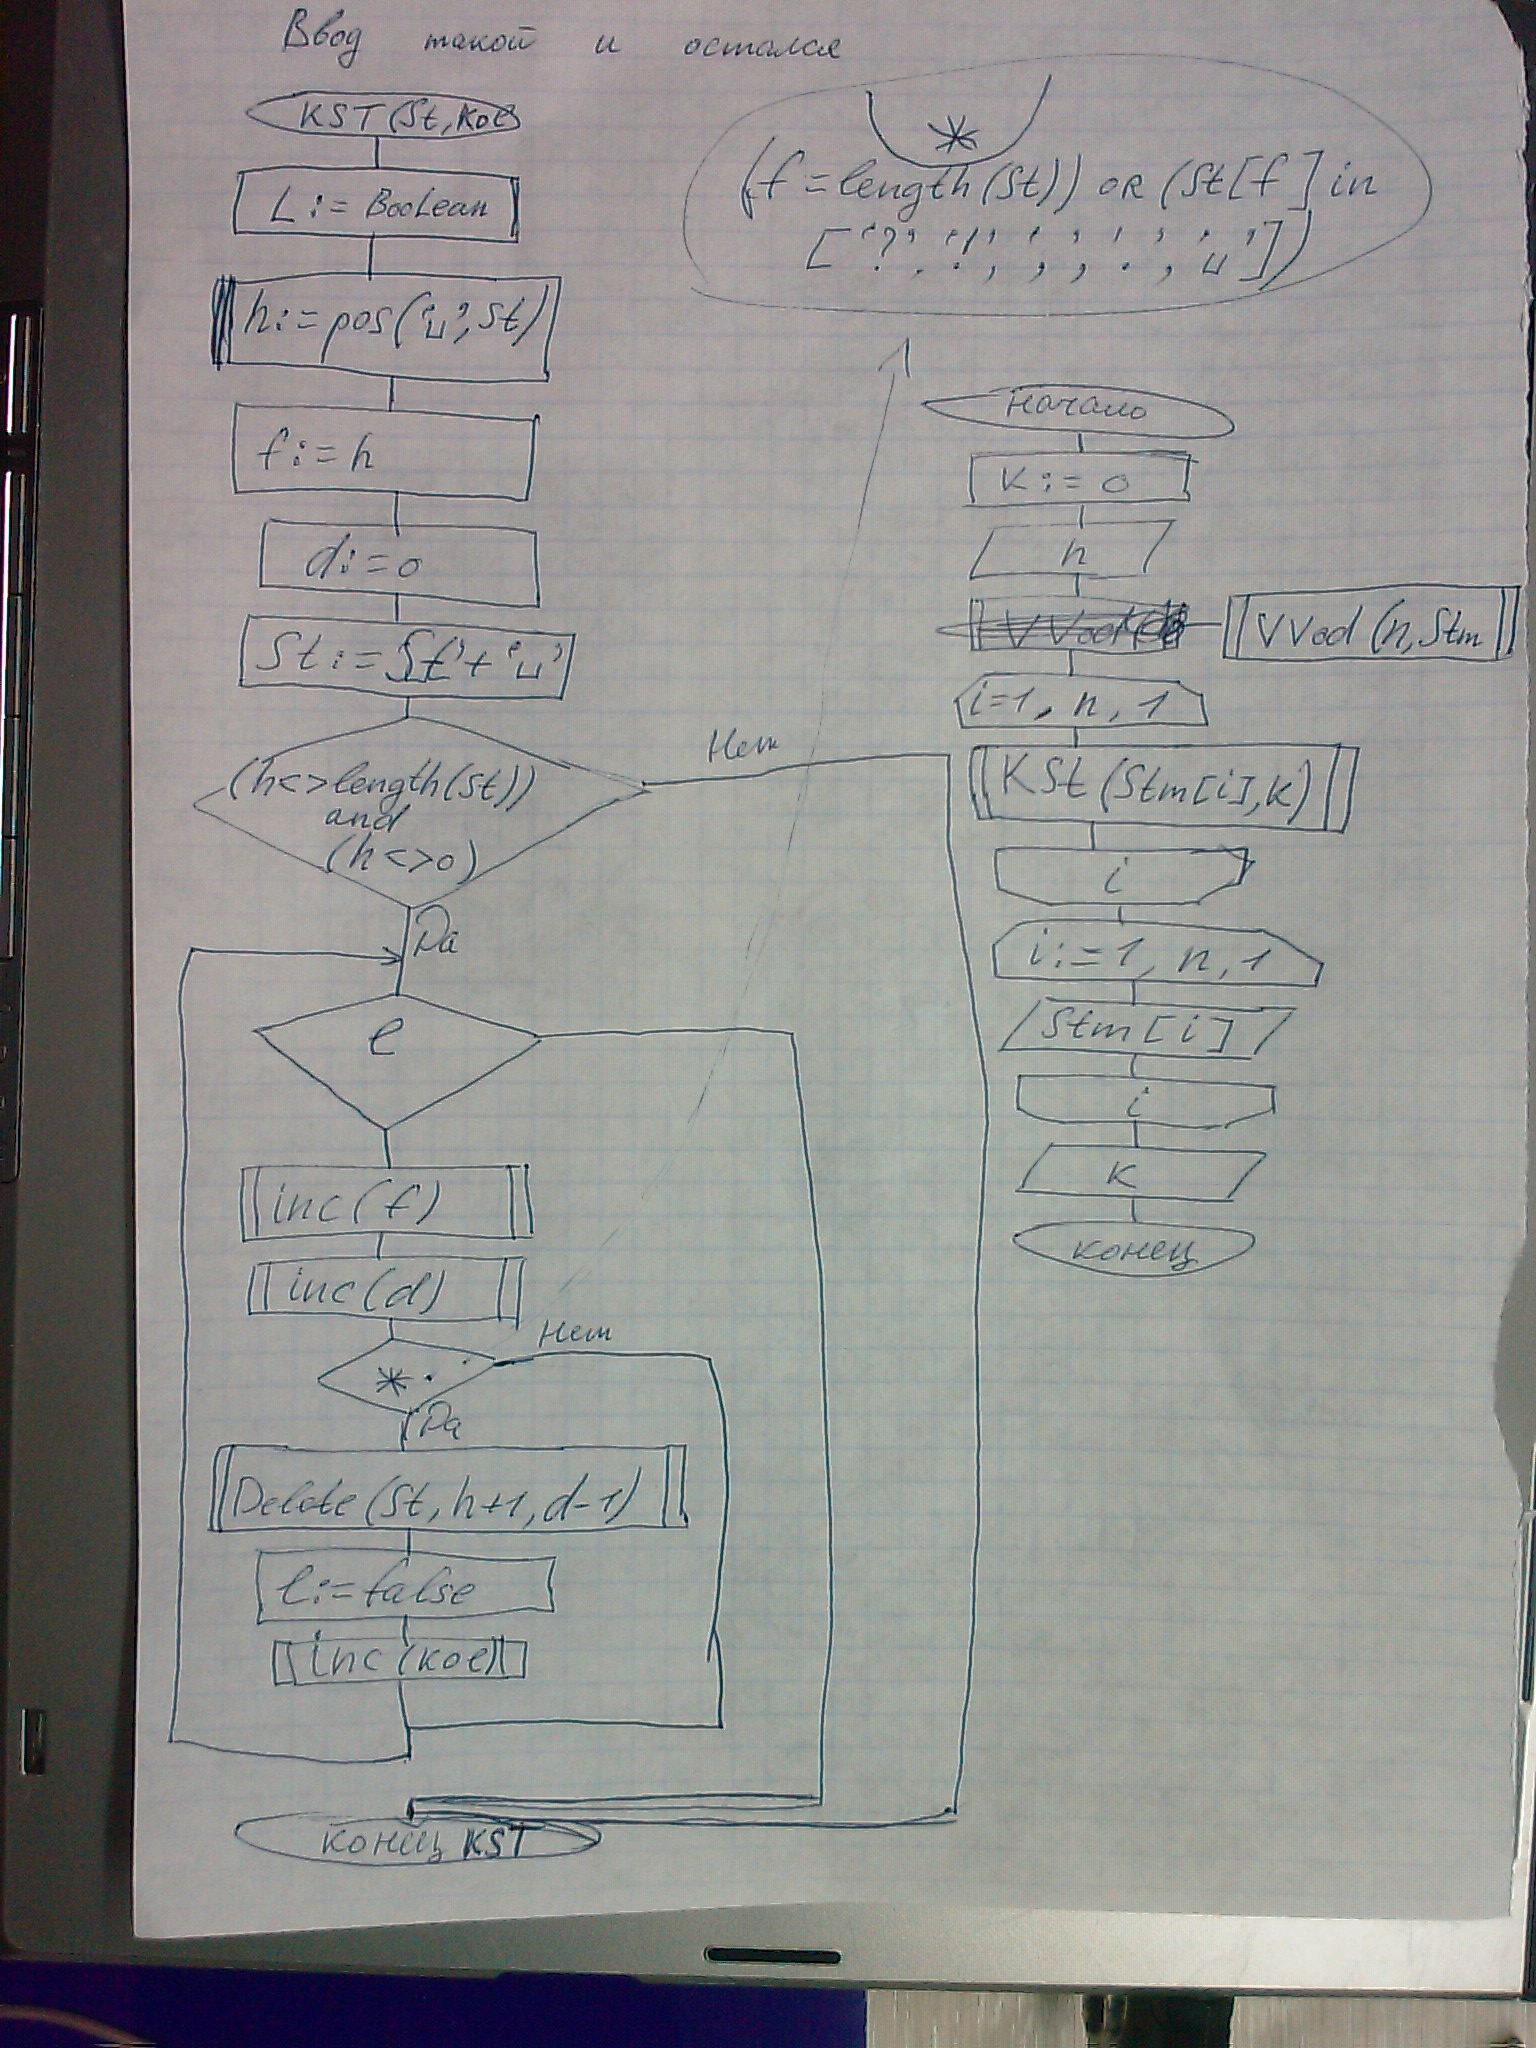 Ввод такой и остался
KST(St,Kol)
L := Boolean
h:=pos('␣',St)
f:=h
d:=0
St:=St+'␣'
(h<>length(St))
and
(h<>0)
Нет
Да
l
inc(f)
inc(d)
*
Нет
Да
Delete(St,h+1,d-1)
l:=false
inc(kol)
конец KST
*
(f=length(St)) OR (St[f] in
['?','!',';',',','.','␣'])
Начало
K:=0
n
VVod(n,Stm
i=1, n, 1
KSt(Stm[i],k)
i
i:=1, n, 1
Stm[i]
i
K
конец